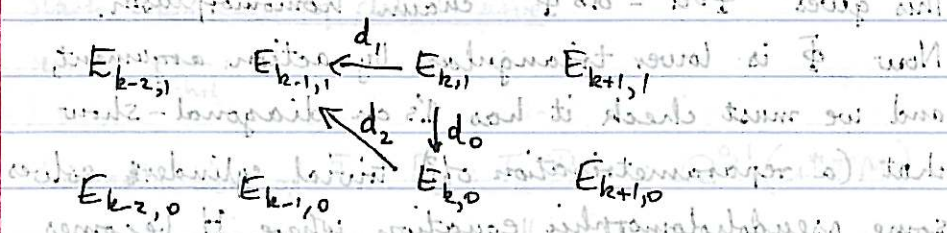 d₁
E_{k-2,1} E_{k-1,1} E_{k,1} E_{k+1,1}
d₂ d₀
E_{k-2,0} E_{k-1,0} E_{k,0} E_{k+1,0}